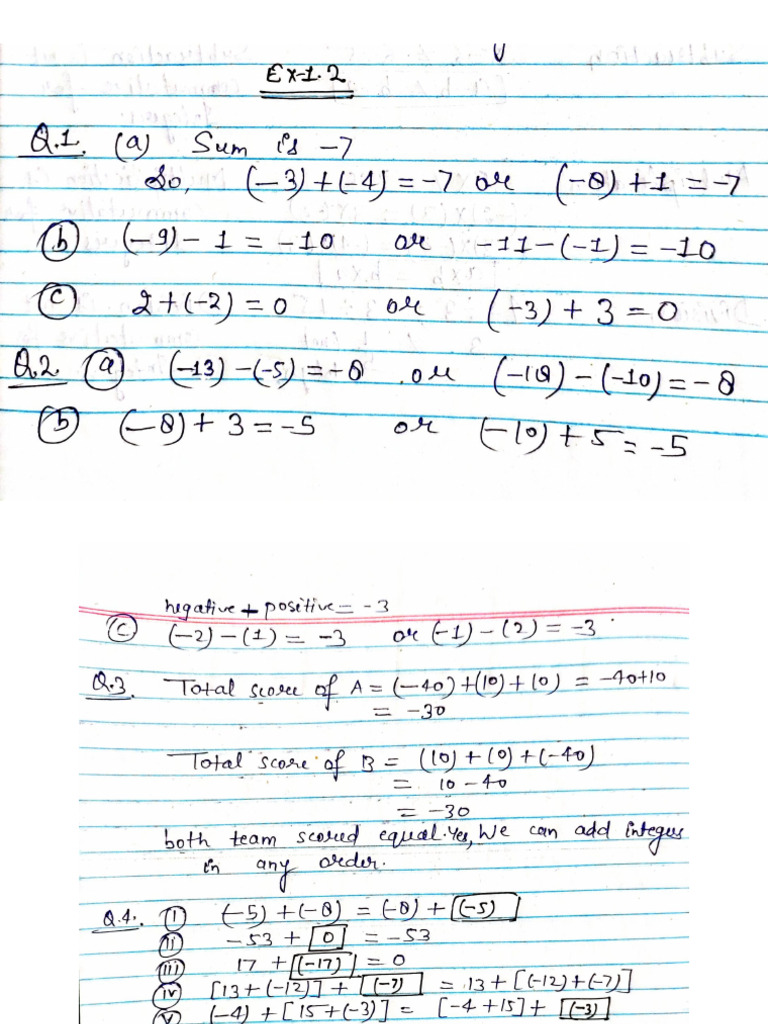 Ex-1.2
Q.1. (a) Sum is -7
So, (-3)+(-4) = -7 or (-8)+1 = -7
(b) (-9)-1 = -10 or -11-(-1) = -10
(c) 2+(-2) = 0 or (-3)+3 = 0
Q.2 (a) (-13)-(-5) = -8 . or (-18)-(-10) = -8
(b) (-8)+3 = -5 or (-10)+5 = -5
negative + positive = -3
(c) (-2)-(1) = -3 or (-1)-(2) = -3
Q.3 Total score of A = (-40)+(10)+(0) = -40+10
= -30
Total score of B = (10)+(0)+(-40)
= 10-40
= -30
both team scored equal. Yes, We can add integers
in any order.
Q.4. (i) (-5)+(-8) = (-8)+(-5)
(ii) -53+0 = -53
(iii) 17+(-17) = 0
(iv) [13+(-12)]+(-7) = 13+[(-12)+(-7)]
(v) (-4)+[15+(-3)] = [-4+15]+(-3)